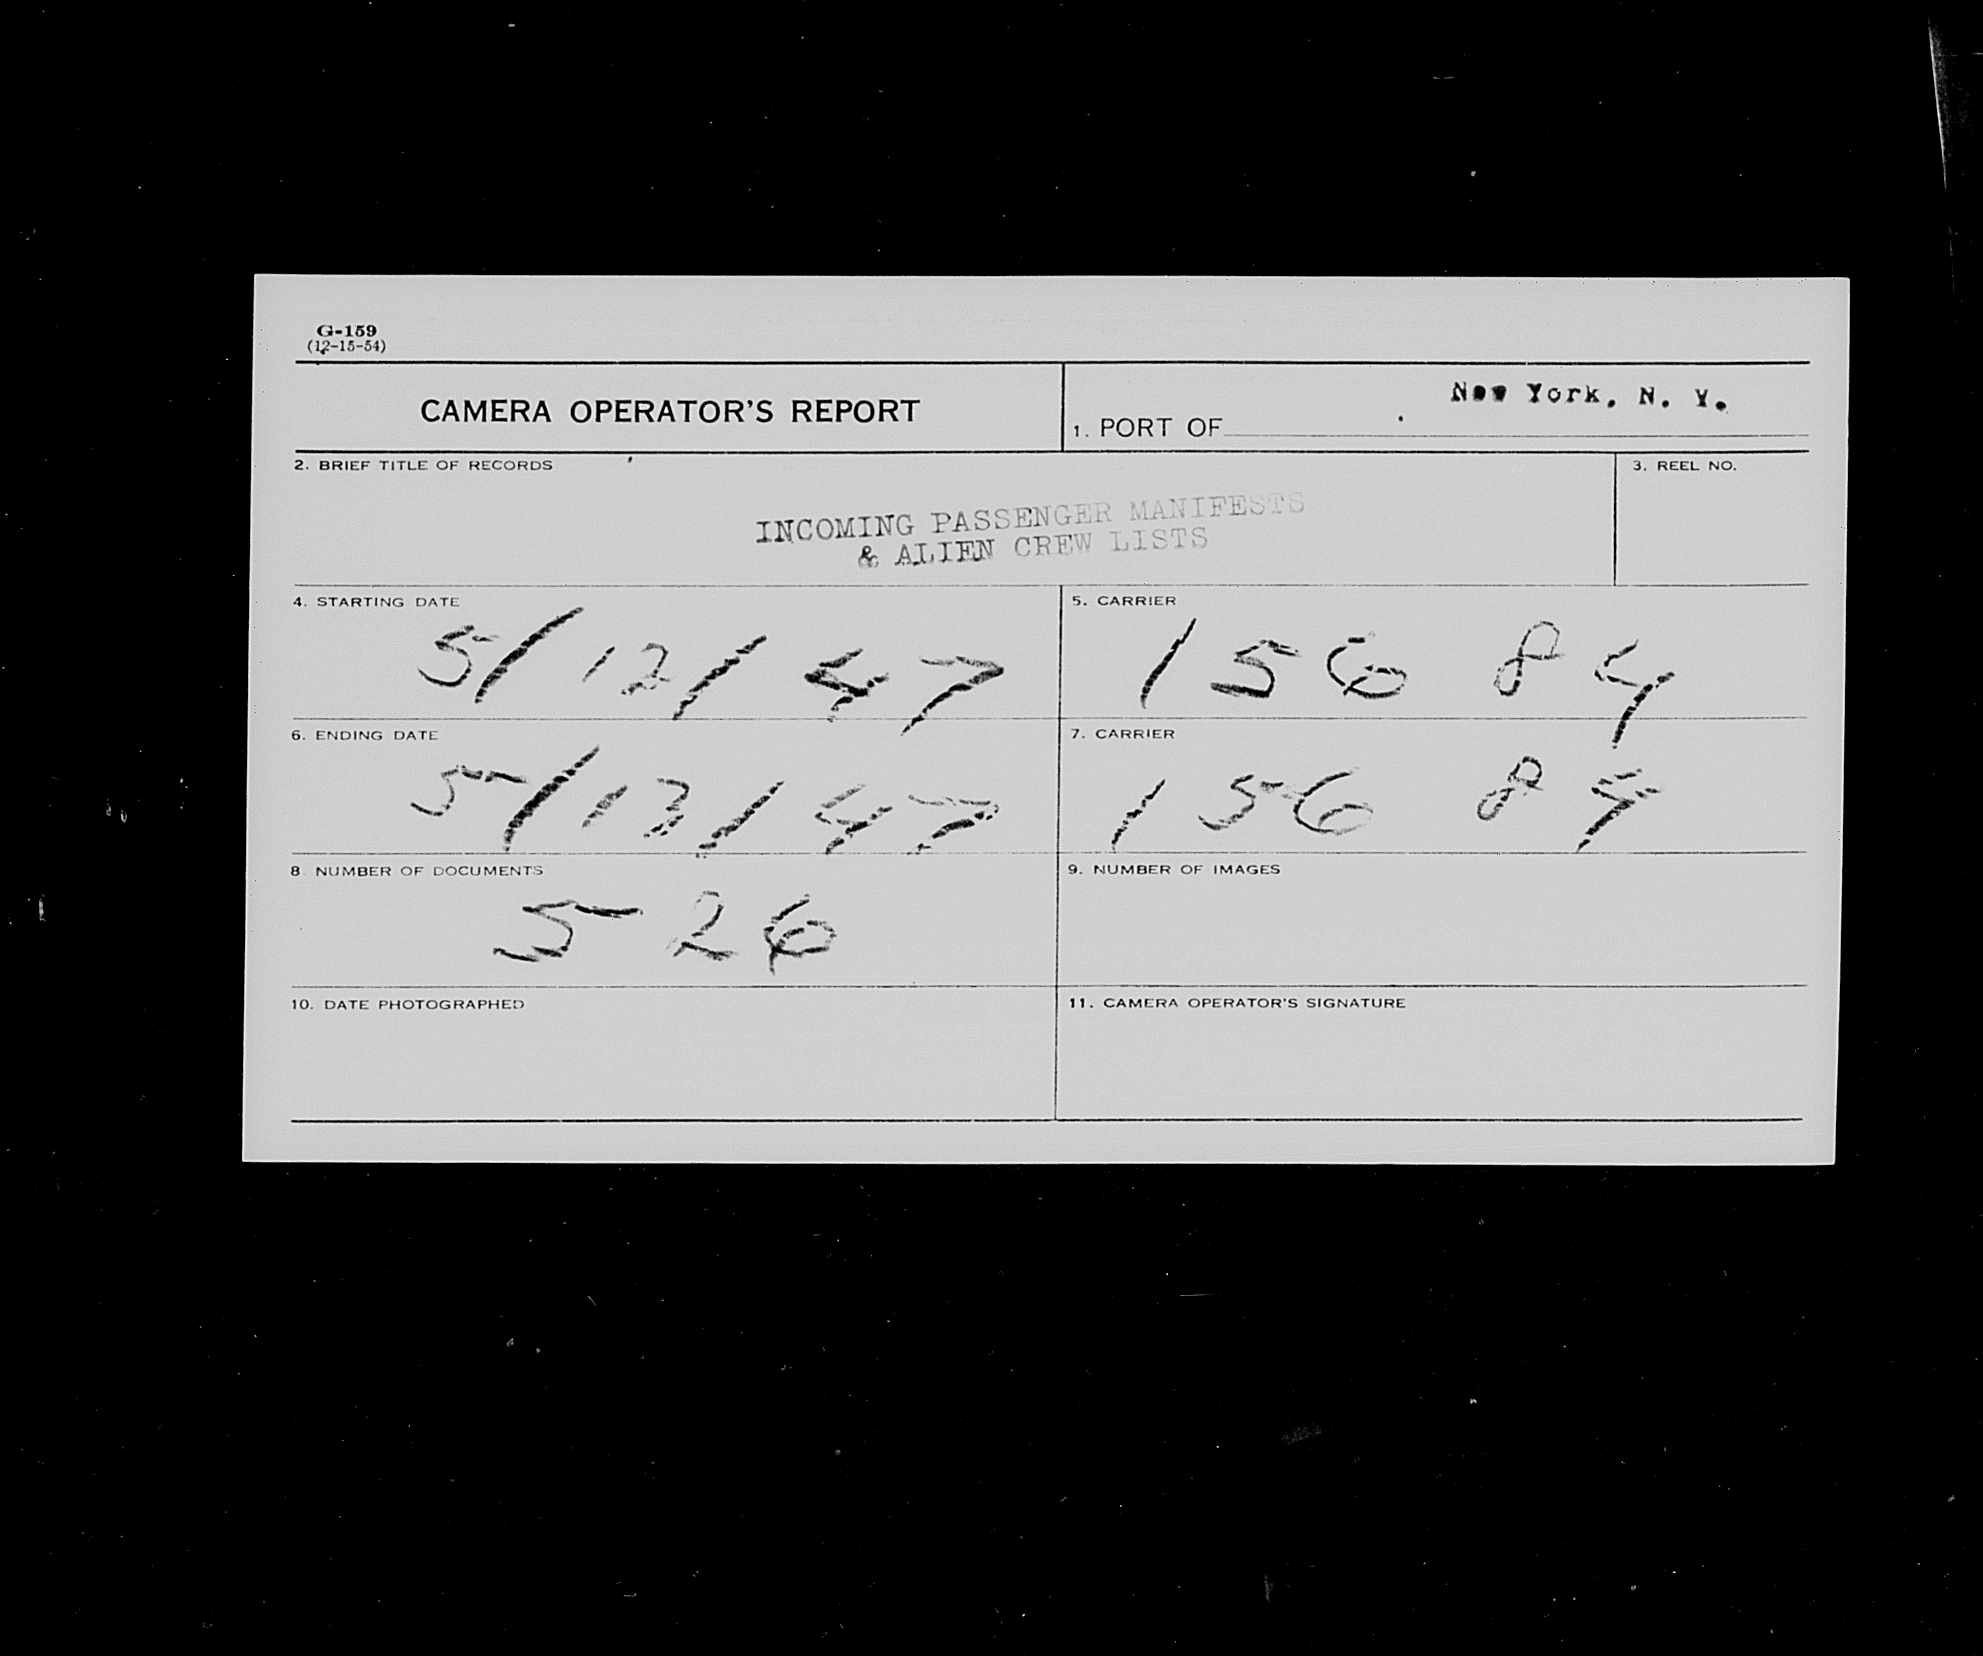 G-159
(12-15-54)
CAMERA OPERATOR'S REPORT
1. PORT OF New York, N. Y.
2. BRIEF TITLE OF RECORDS
INCOMING PASSENGER MANIFESTS
& ALIEN CREW LISTS
3. REEL NO.
4. STARTING DATE
5/12/47
5. CARRIER
156 84
6. ENDING DATE
5/13/47
7. CARRIER
156 84
8. NUMBER OF DOCUMENTS
526
9. NUMBER OF IMAGES
10. DATE PHOTOGRAPHED
11. CAMERA OPERATOR'S SIGNATURE